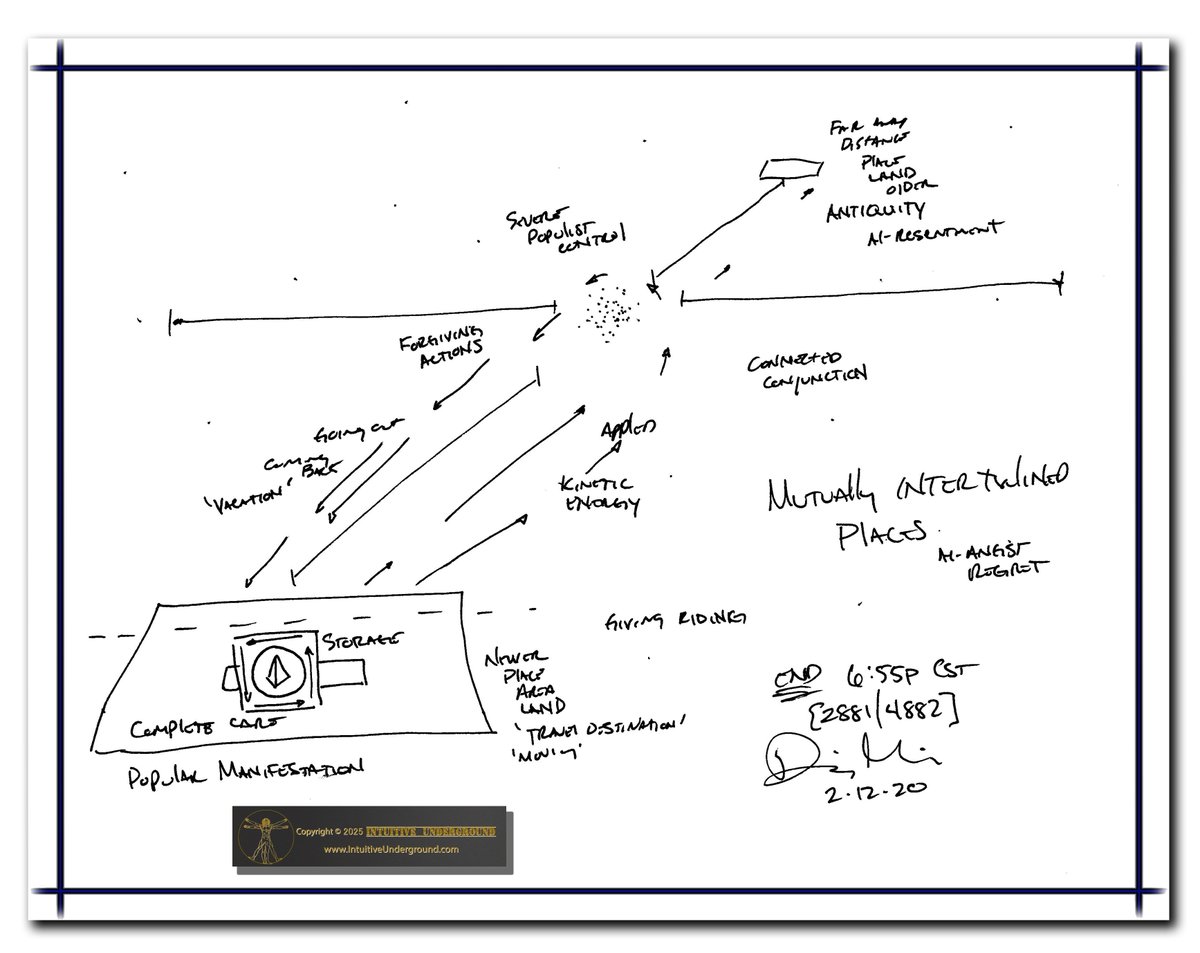 FAR AWAY
DISTANCE
PLACE
LAND
OLDER
ANTIQUITY
AI-RESENTMENT
SEVERE
POPULIST
CONTROL
FORGIVING
ACTIONS
CONNECTED
CONJUNCTION
GOING OUT
COMING
BACK
'VACATION'
APPLIED
KINETIC
ENERGY
MUTUALLY INTERTWINED
PLACES
AI-ANGIST
REGRET
GIVING RIDING
STORAGE
COMPLETE CARE
NEWER
PLACE
AREA
LAND
'TRAVEL DESTINATION'
POPULAR MANIFESTATION
END 6:55P CST
[2881/4882]
2-12-20
Copyright © 2025 INTUITIVE UNDERGROUND
www.IntuitiveUnderground.com